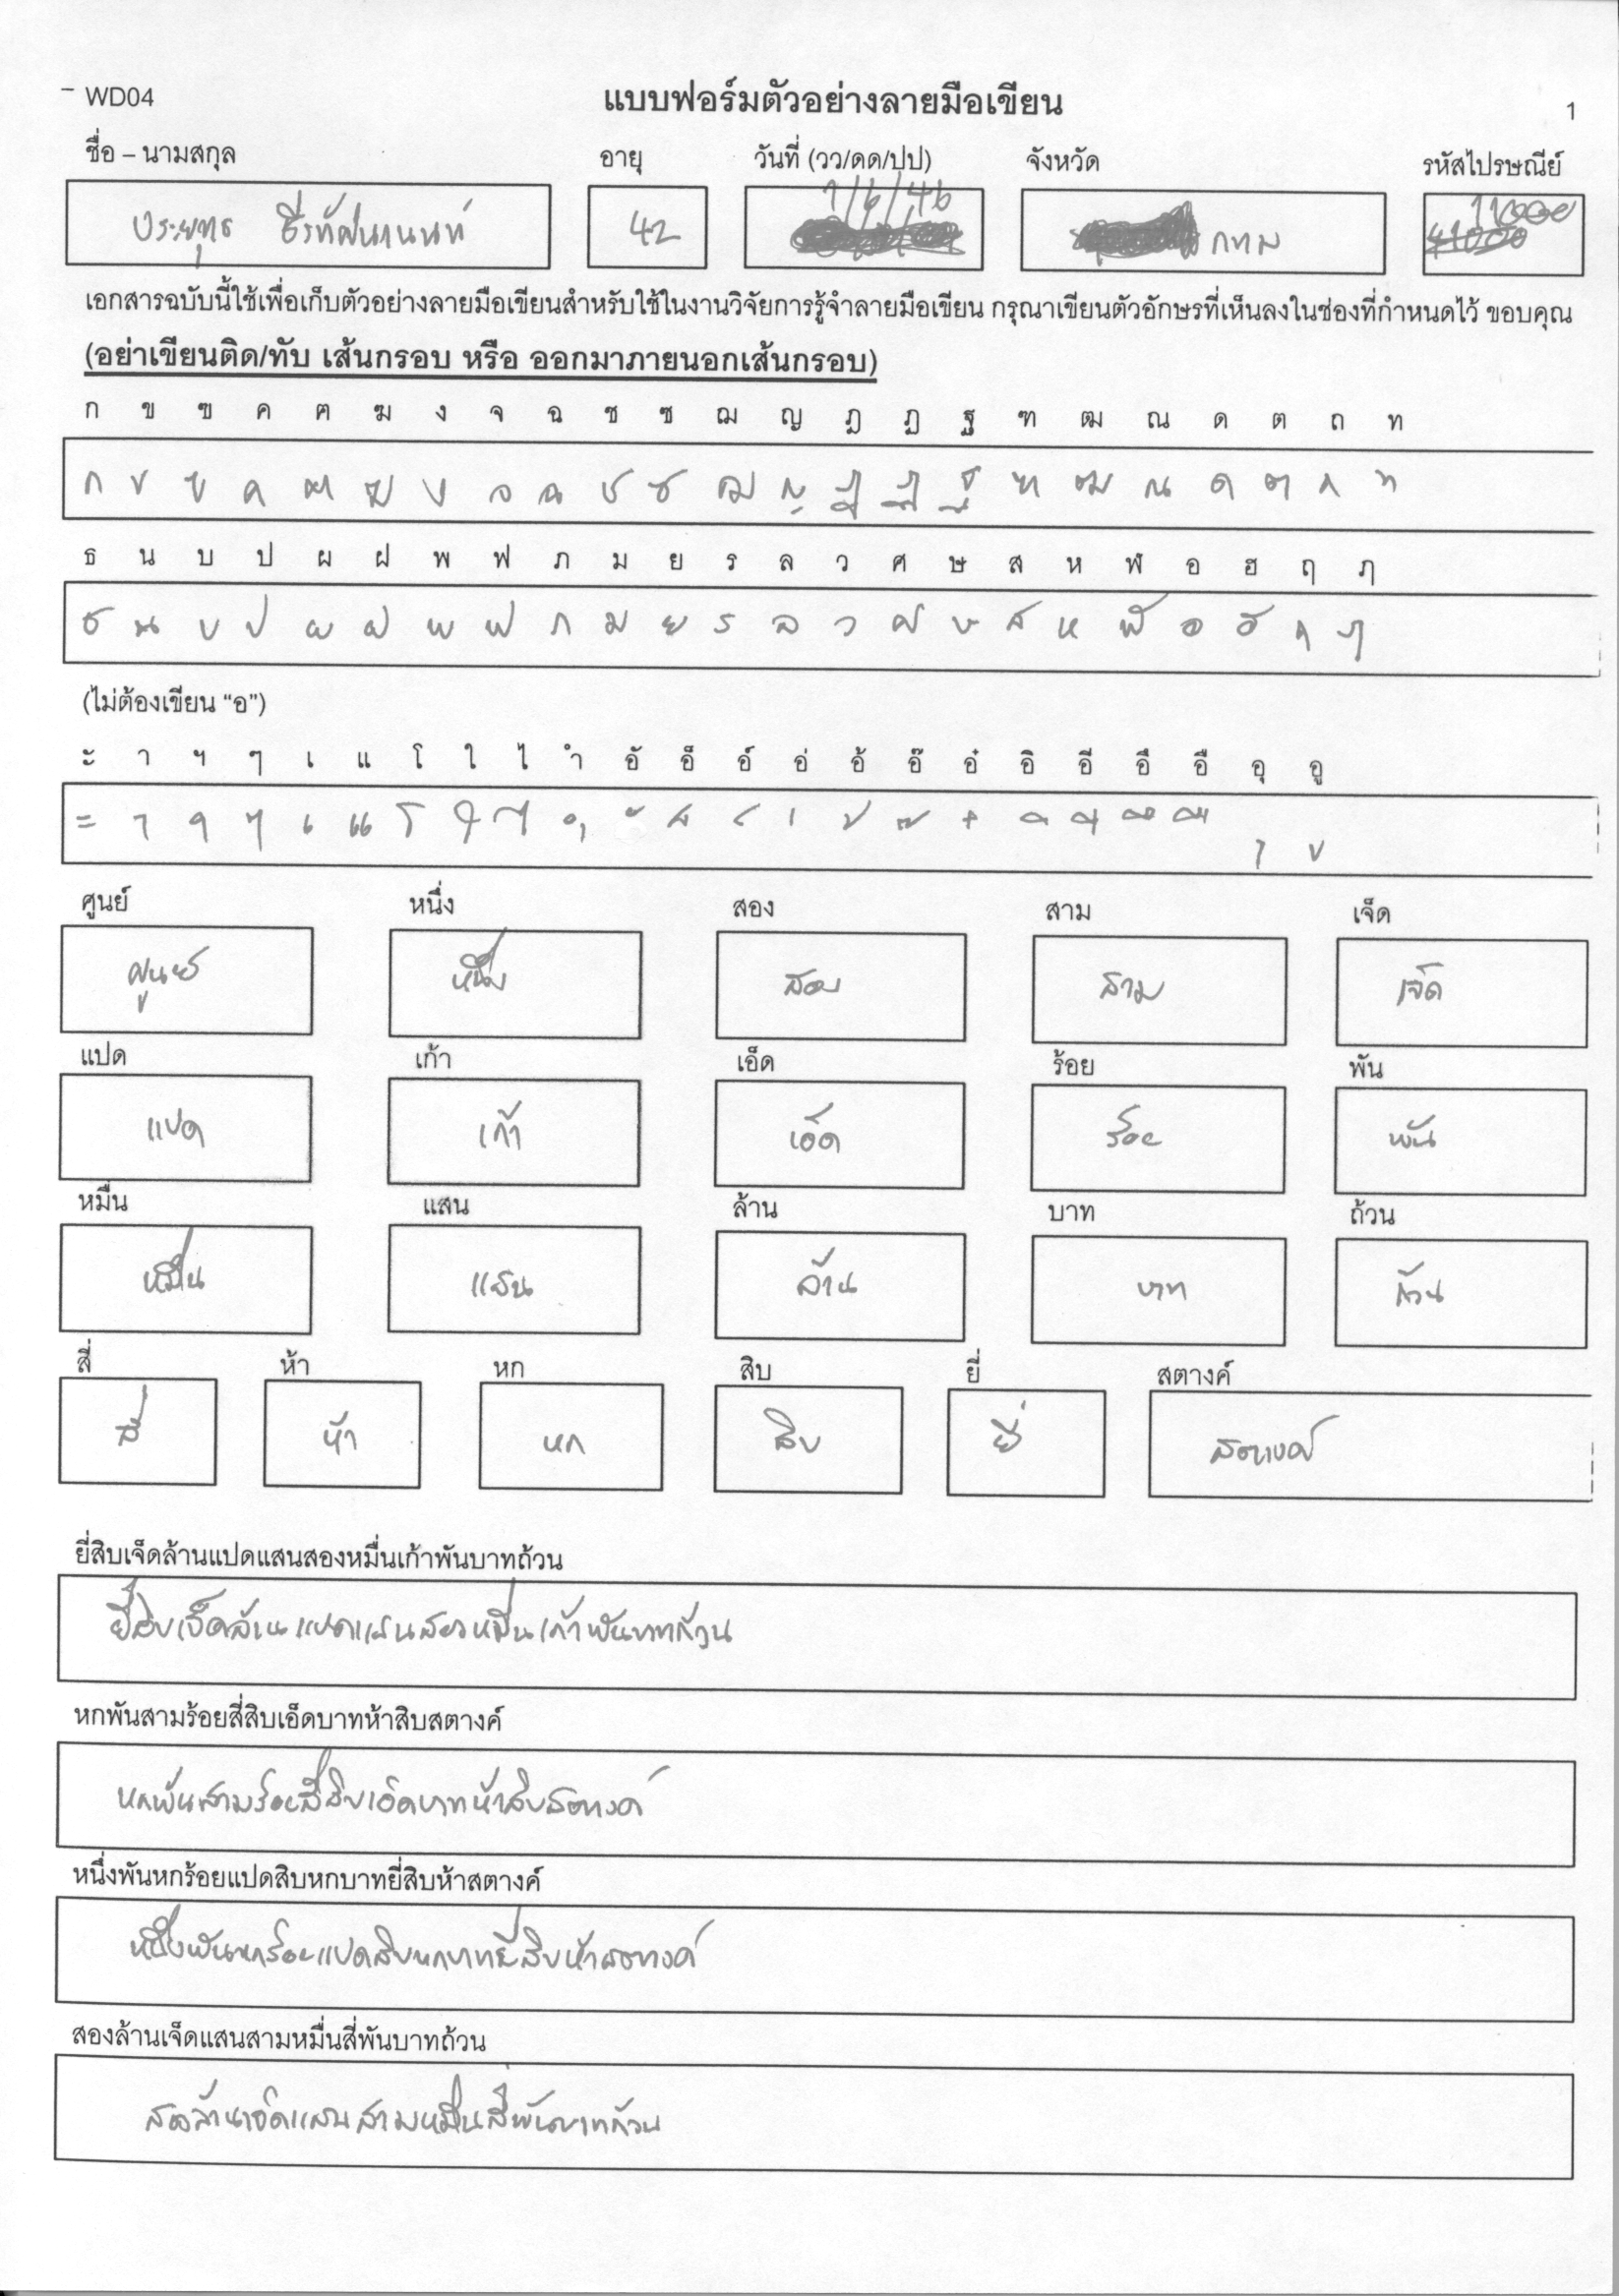 WD04 แบบฟอร์มตัวอย่างลายมือเขียน 1
ชื่อ – นามสกุล อายุ วันที่ (วว/ดด/ปป) จังหวัด รหัสไปรษณีย์
ประยุทธ 42 7/6/46 กทม
เอกสารฉบับนี้ใช้เพื่อเก็บตัวอย่างลายมือเขียนสำหรับใช้ในงานวิจัยการรู้จำลายมือเขียน กรุณาเขียนตัวอักษรที่เห็นลงในช่องที่กำหนดไว้ ขอบคุณ
(อย่าเขียนติด/ทับ เส้นกรอบ หรือ ออกมาภายนอกเส้นกรอบ)
ก ข ฃ ค ฅ ฆ ง จ ฉ ช ซ ฌ ญ ฎ ฏ ฐ ฑ ฒ ณ ด ต ถ ท
ก ข ฃ ค ฅ ฆ ง จ ฉ ช ซ ฌ ญ ฎ ฏ ฐ ฑ ฒ ณ ด ต ถ ท
ธ น บ ป ผ ฝ พ ฟ ภ ม ย ร ล ว ศ ษ ส ห ฬ อ ฮ ฤ ฦ
ธ น บ ป ผ ฝ พ ฟ ภ ม ย ร ล ว ศ ษ ส ห ฬ อ ฮ ฤ ฦ
(ไม่ต้องเขียน “อ”)
ะ า ฯ ๆ เ แ โ ใ ไ ำ อั อ็ อ์ อ่ อ้ อ๊ อ๋ อิ อี อึ อื อุ อู
ะ า ฯ ๆ เ แ โ ใ ไ ำ ั ็ ์ ่ ้ ๊ ๋ ิ ี ึ ื ุ ู
ศูนย์ หนึ่ง สอง สาม เจ็ด
ศูนย์ หนึ่ง สอง สาม เจ็ด
แปด เก้า เอ็ด ร้อย พัน
แปด เก้า เอ็ด ร้อย พัน
หมื่น แสน ล้าน บาท ถ้วน
หมื่น แสน ล้าน บาท ถ้วน
สี่ ห้า หก สิบ ยี่ สตางค์
สี่ ห้า หก สิบ ยี่ สตางค์
ยี่สิบเจ็ดล้านแปดแสนสองหมื่นเก้าพันบาทถ้วน
ยี่สิบเจ็ดล้านแปดแสนสองหมื่นเก้าพันบาทถ้วน
หกพันสามร้อยสี่สิบเอ็ดบาทห้าสิบสตางค์
หกพันสามร้อยสี่สิบเอ็ดบาทห้าสิบสตางค์
หนึ่งพันหกร้อยแปดสิบหกบาทยี่สิบห้าสตางค์
หนึ่งพันหกร้อยแปดสิบหกบาทยี่สิบห้าสตางค์
สองล้านเจ็ดแสนสามหมื่นสี่พันบาทถ้วน
สองล้านเจ็ดแสนสามหมื่นสี่พันบาทถ้วน